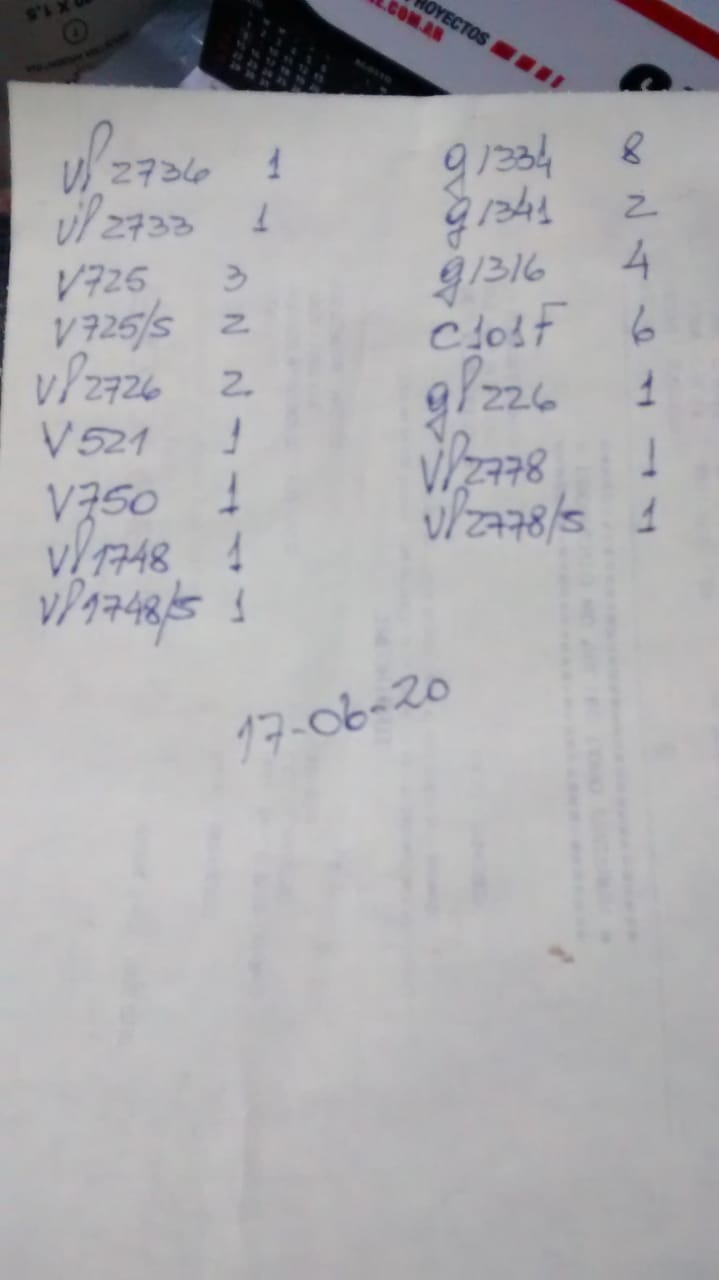 PROYECTOS
E.COM.AR
vP2736 1
vP2733 1
V725 3
V725/S 2
vP2726 2
V521 1
V750 1
vP1748 1
vP1748/S 1
g1334 8
g1341 2
g1316 4
C101F 6
gP226 1
vP2778 1
vP2778/S 1
17-06-20